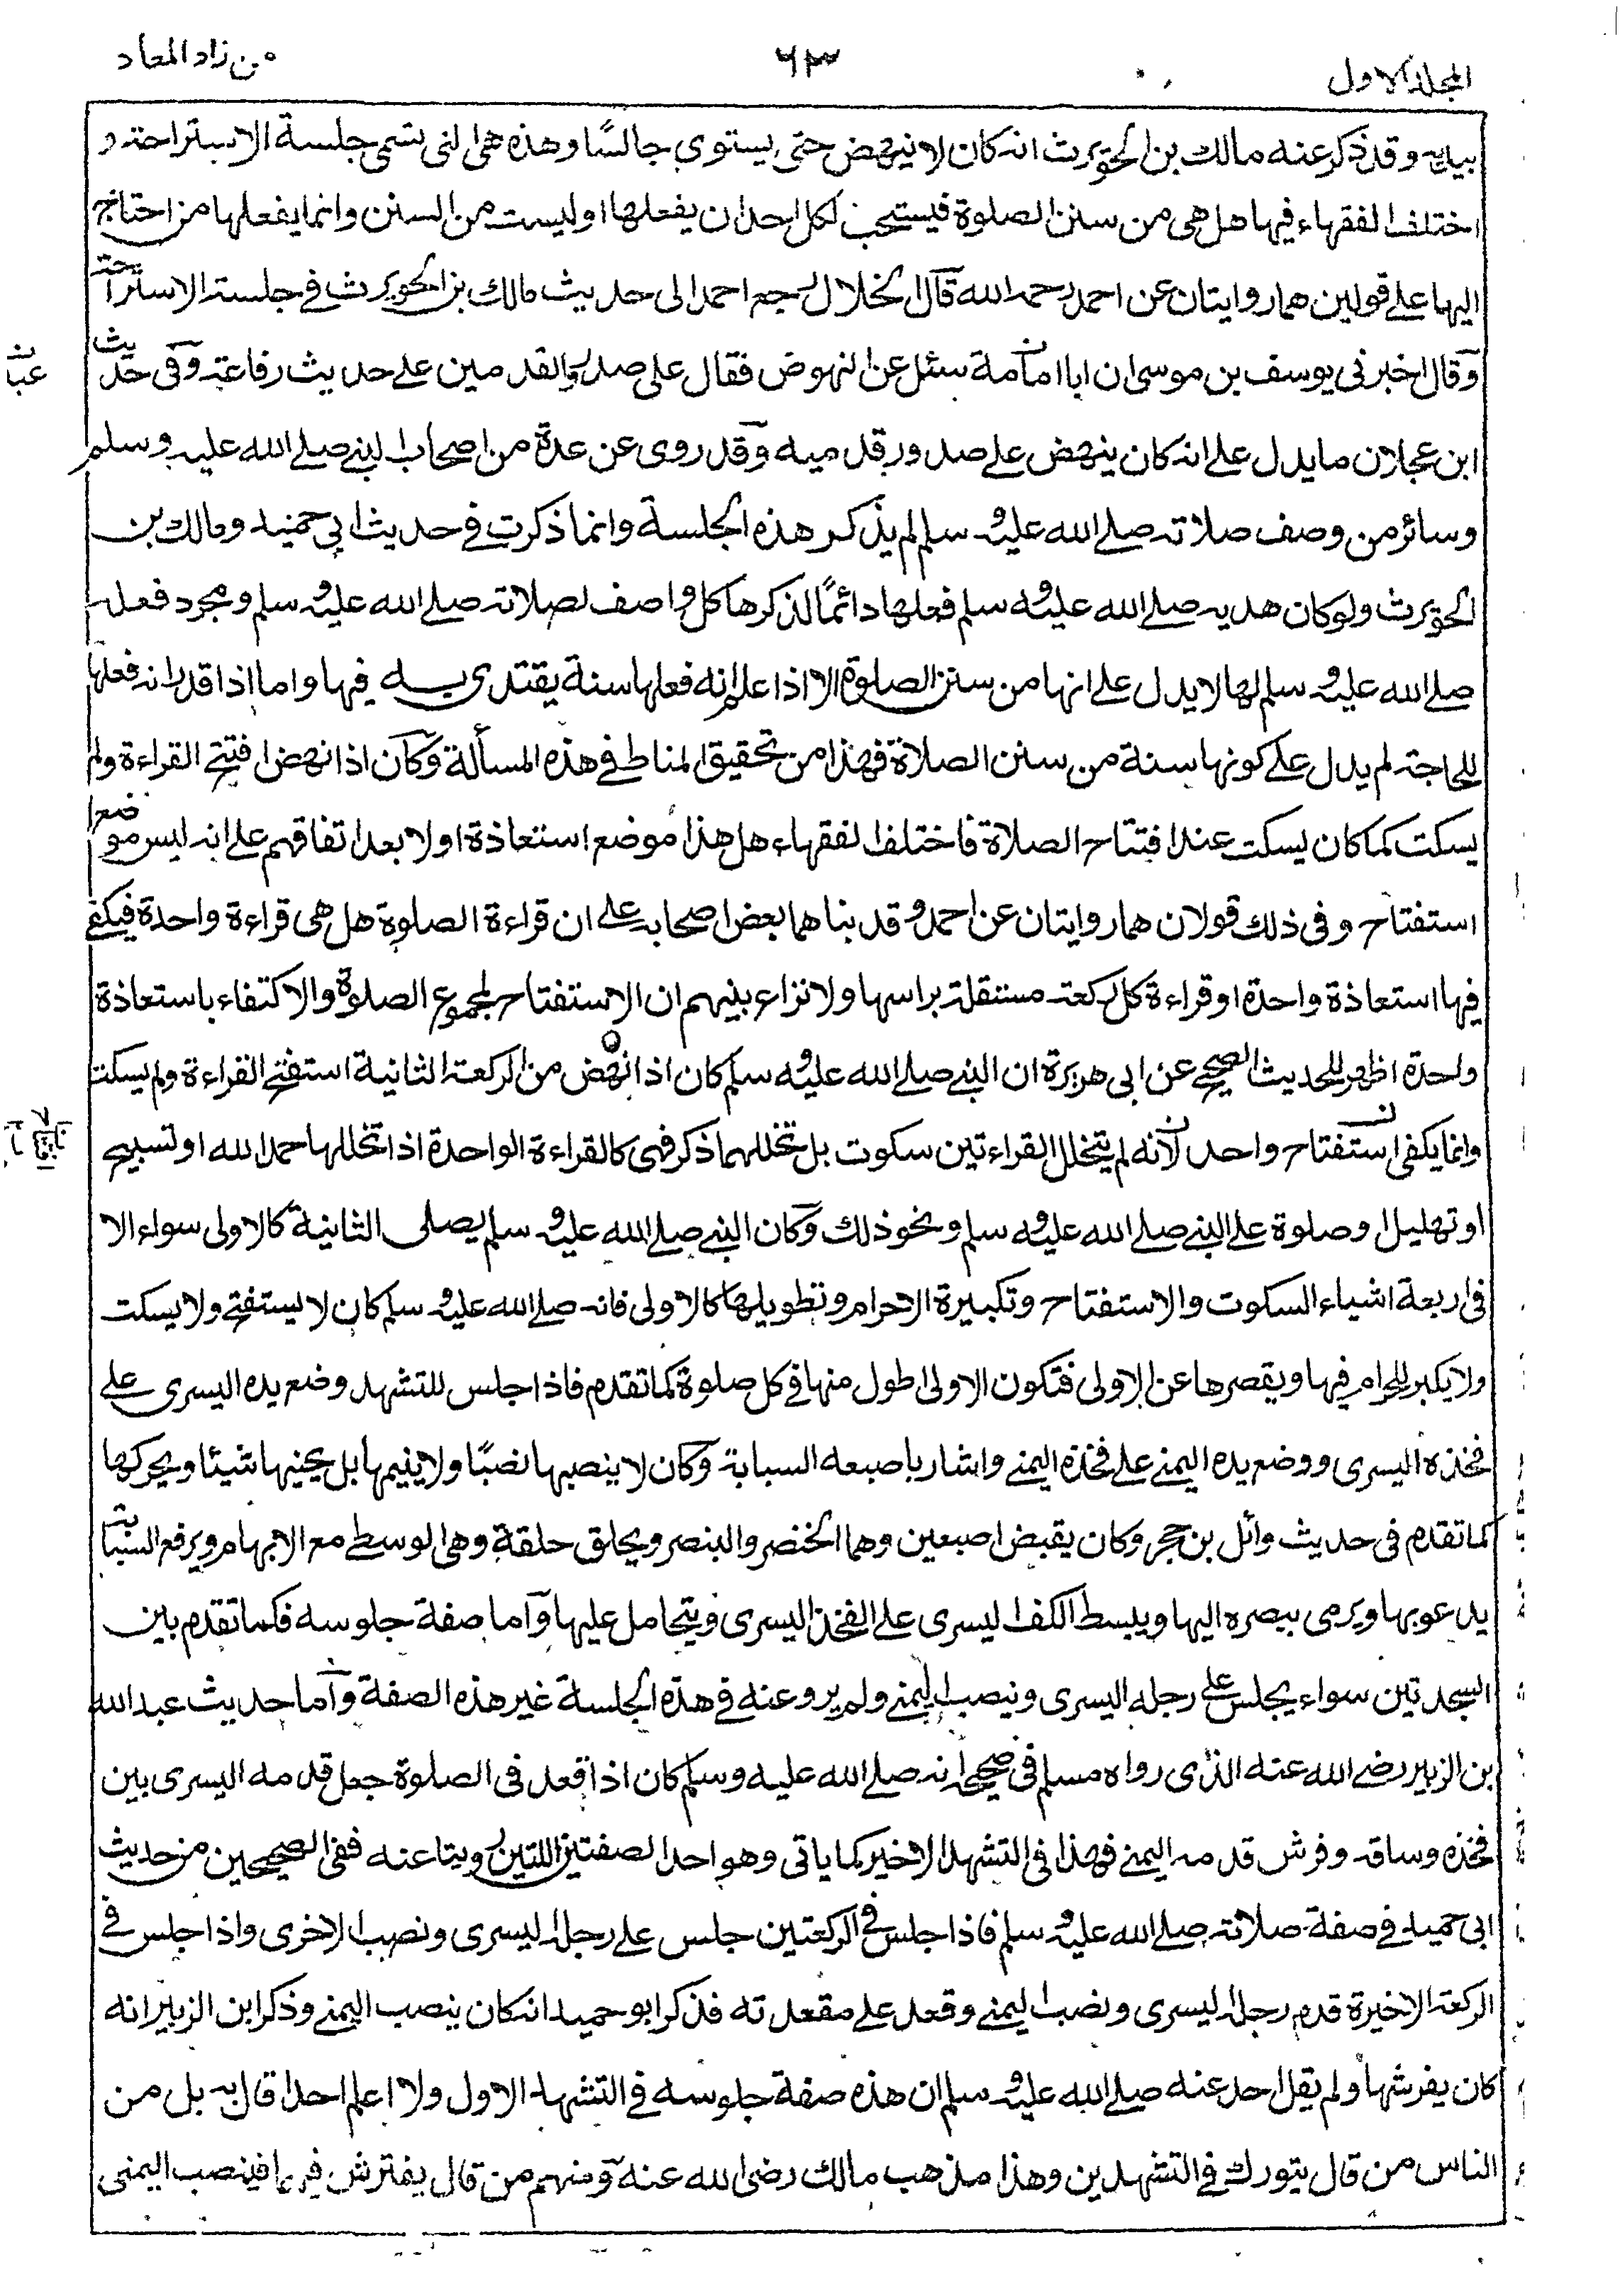 المجلد الاول
٦٣
من زاد المعاد
بيديه وقد ذكر عنه مالك بن الحويرث انه كان لا ينهض حتى يستوي جالسًا وهذه هي التي تسمى جلسة الاستراحة و
اختلف الفقهاء فيها هل هي من سنن الصلوة فيستحب لكل احد ان يفعلها او ليست من السنن وانما يفعلها من احتاج
اليها على قولين هما روايتان عن احمد رحمه الله قال الخلال رجع احمد الى حديث مالك بن الحويرث في جلسة الاستراحة
وقال اخبرني يوسف بن موسى ان ابا امامة سئل عن النهوض فقال على صدور القدمين على حديث رفاعة وفي حديث
ابن عجلان ما يدل على انه كان ينهض على صدور قدميه وقد روى عن عدة من اصحاب النبي صلى الله عليه وسلم
وسائر من وصف صلاته صلى الله عليه وسلم لم يذكر هذه الجلسة وانما ذكرت في حديث ابي حميد ومالك بن
الحويرث ولو كان هديه صلى الله عليه وسلم فعلها دائمًا لذكرها كل واصف لصلاته صلى الله عليه وسلم ومجرد فعله
صلى الله عليه وسلم لها لا يدل على انها من سنن الصلوة الا اذا علم انه فعلها سنة يقتدى به فيها واما اذا قدر انه فعلها
للحاجة لم يدل على كونها سنة من سنن الصلاة فهذا من تحقيق المناط في هذه المسألة وكان اذا نهض افتتح القراءة ولم
يسكت كما كان يسكت عند افتتاح الصلاة فاختلف الفقهاء هل هذا موضع استعاذة او لا بعد اتفاقهم على انه ليس موضعا
استفتاح وفي ذلك قولان هما روايتان عن احمد وقد بناهما بعض اصحابه على ان قراءة الصلوة هل هي قراءة واحدة فيكفي
فيها استعاذة واحدة او قراءة كل ركعة مستقلة براسها ولا نزاع بينهم ان الاستفتاح لمجموع الصلوة والاكتفاء باستعاذة
واحدة اظهر للحديث الصحيح عن ابي هريرة ان النبي صلى الله عليه وسلم كان اذا نهض من الركعة الثانية استفتح القراءة ولم يسكت
وانما يكفي استفتاح واحد لانه لم يتخلل القراءتين سكوت بل تخللهما ذكر فهي كالقراءة الواحدة اذا تخللها حمد الله او تسبيح
او تهليل او صلوة على النبي صلى الله عليه وسلم ونحو ذلك وكان النبي صلى الله عليه وسلم يصلى الثانية كالاولى سواء الا
في اربعة اشياء السكوت والاستفتاح وتكبيرة الاحرام وتطويلها كالاولى فانه صلى الله عليه وسلم كان لا يستفتح ولا يسكت
ولا يكبر للحرام فيها ويقصرها عن الاولى فتكون الاولى اطول منها في كل صلوة كما تقدم فاذا جلس للتشهد وضع يده اليسرى على
فخذه اليسرى ووضع يده اليمنى على فخذه اليمنى واشار باصبعه السبابة وكان لا ينصبها نصبًا ولا ينيمها بل يحنيها شيئا ويحركها
كما تقدم في حديث وائل بن حجر وكان يقبض اصبعين وهما الخنصر والبنصر ويحلق حلقة وهي الوسطى مع الابهام ويرفع السبابة
يدعو بها ويرمى ببصره اليها ويبسط الكف اليسرى على الفخذ اليسرى ويتحامل عليها واما صفة جلوسه فكما تقدم بين
السجدتين سواء يجلس على رجله اليسرى وينصب اليمنى ولم يرو عنه في هذه الجلسة غير هذه الصفة واما حديث عبد الله
بن الزبير رضي الله عنه الذي رواه مسلم في صحيحه انه صلى الله عليه وسلم كان اذا قعد في الصلوة جعل قدمه اليسرى بين
فخذه وساقه وفرش قدمه اليمنى فهذا في التشهد الاخير كما ياتي وهو احد الصفتين اللتين رويتا عنه ففي الصحيحين من حديث
ابي حميد في صفة صلاته صلى الله عليه وسلم فاذا جلس في الركعتين جلس على رجله اليسرى ونصب الاخرى واذا جلس في
الركعة الاخيرة قدم رجله اليسرى ونصب اليمنى وقعد على مقعدته فذكر ابو حميد انه كان ينصب اليمنى وذكر ابن الزبير انه
كان يفرشها ولم يقل احد عنه صلى الله عليه وسلم ان هذه صفة جلوسه في التشهد الاول ولا اعلم احدا قال به بل من
الناس من قال يتورك في التشهدين وهذا مذهب مالك رضي الله عنه ومنهم من قال يفترش فيهما فينصب اليمنى